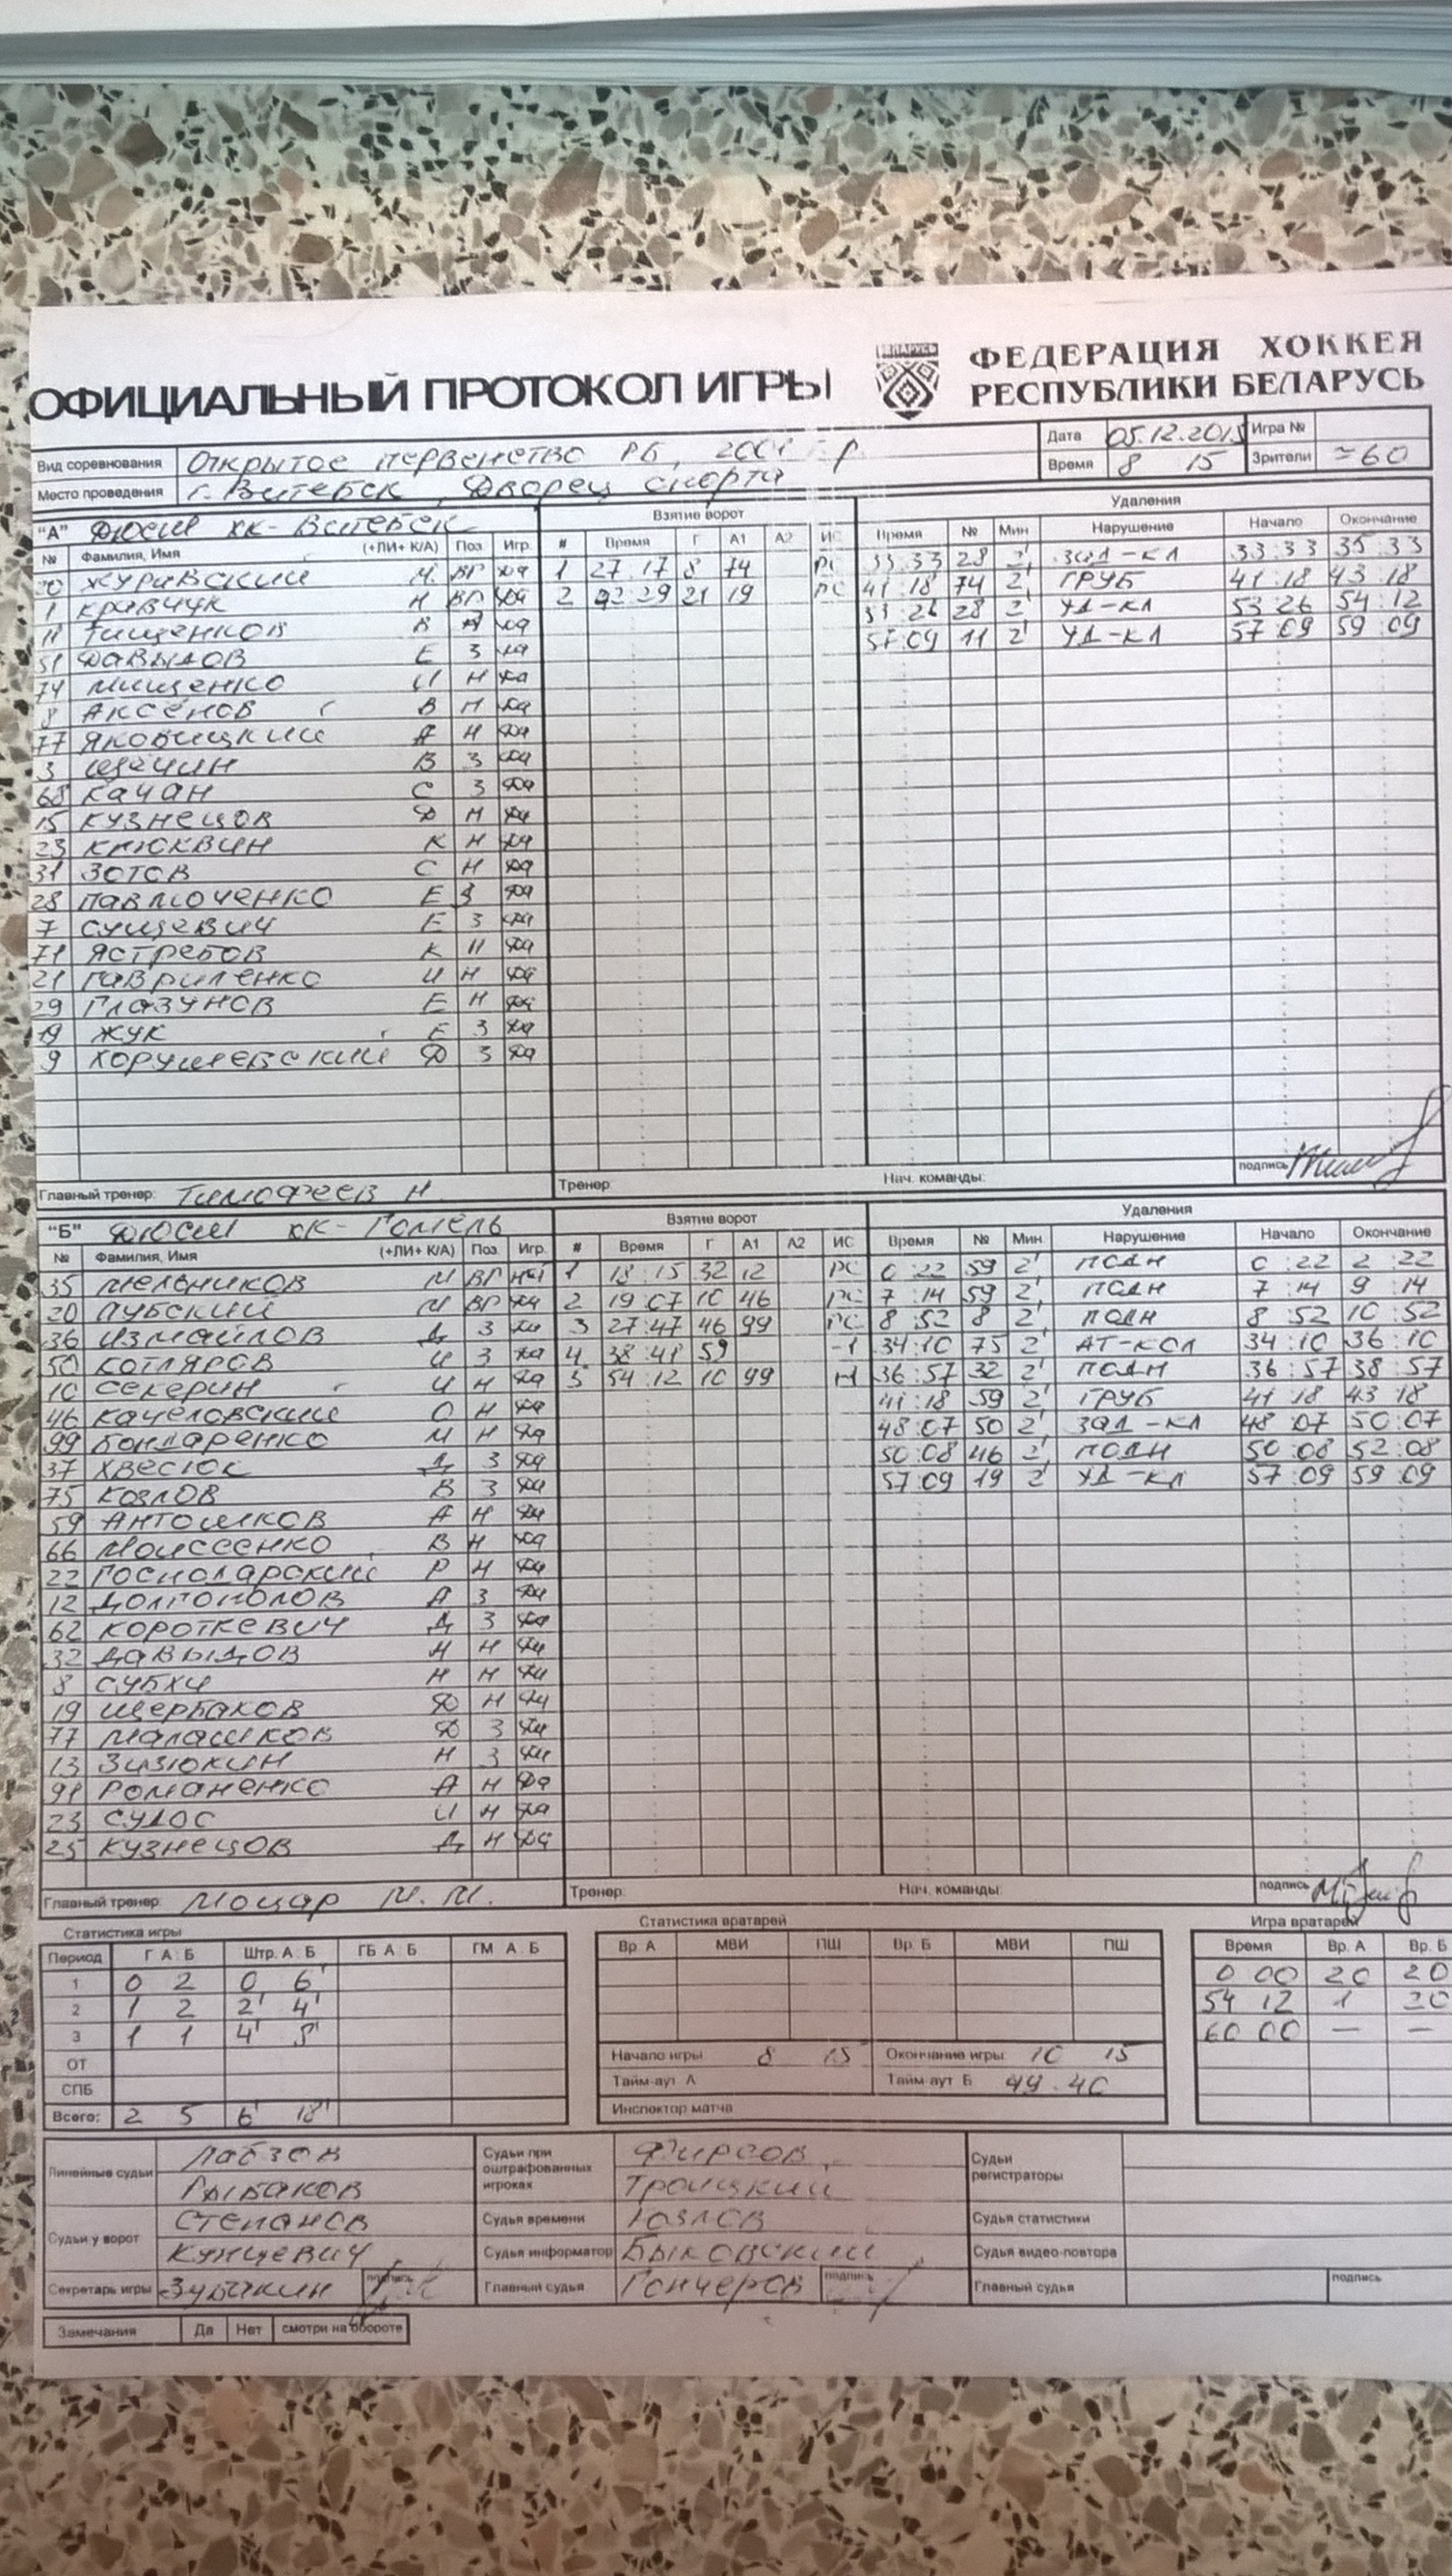 ОФИЦИАЛЬНЫЙ ПРОТОКОЛ ИГРЫ
БЕЛАРУСЬ
ФЕДЕРАЦИЯ ХОККЕЯ
РЕСПУБЛИКИ БЕЛАРУСЬ
Вид соревнования Открытое первенство РБ, 2001 г.р. Дата 05.12.2015 Игра №
Место проведения г. Витебск, Дворец спорта Время 8 15 Зрители ≈60
"А" ДЮСШ ХК-Витебск Взятие ворот Удаления
№ Фамилия, Имя (+ЛИ+ К/А) Поз Игр. # Время Г А1 А2 ИС Время № Мин Нарушение Начало Окончание
20 Журавский М. ВР да 1 27:17 8 74 РС 33:33 28 2' ЗАД-КЛ 33:33 35:33
1 Кравчук Н ВР да 2 42:29 21 19 РС 41:18 74 2' ГРУБ 41:18 43:18
11 Тищенков В да 53:26 28 2' УД-КЛ 53:26 54:12
51 Давыдов Е З да 57:09 11 2' УД-КЛ 57:09 59:09
74 Мищенко И Н да
8 Аксёнов В Н да
77 Яковицкий А Н да
3 Щечин В З да
68 Качан С З да
15 Кузнецов Д Н да
23 Клюквин К Н да
31 Зотов С Н да
28 Павлюченко Е З да
7 Сущевич Е З да
71 Ястребов К Н да
21 Гавриленко И Н да
29 Глазунов Е Н да
19 Жук Е З да
9 Хорушевский Д З да
Главный тренер: Тимофеев Н. Тренер: Нач. команды: подпись
"Б" ДЮСШ ХК-Гомель Взятие ворот Удаления
№ Фамилия, Имя (+ЛИ+ К/А) Поз. Игр. # Время Г А1 А2 ИС Время № Мин. Нарушение Начало Окончание
35 Мельников М ВР нет 1 18:15 32 12 РС 0:22 59 2' ПОДН 0:22 2:22
20 Лубский И ВР да 2 19:07 10 46 РС 7:14 59 2' ПОДН 7:14 9:14
36 Измайлов Д З да 3 27:47 46 99 РС 8:52 8 2' ПОДН 8:52 10:52
50 Котляров И З да 4 38:41 59 -1 34:10 75 2' АТ-КОЛ 34:10 36:10
10 Секерин И Н да 5 54:12 10 99 +1 36:57 32 2' ПОДН 36:57 38:57
46 Качеловский О Н да 41:18 59 2' ГРУБ 41:18 43:18
99 Бондаренко М Н да 48:07 50 2' ЗАД-КЛ 48:07 50:07
37 Хвесюк Д З да 50:08 46 2' ПОДН 50:08 52:08
75 Козлов В З да 57:09 19 2' УД-КЛ 57:09 59:09
59 Антошков А Н да
66 Моисеенко В Н да
22 Господарский Р Н да
12 Долгополов А З да
62 Короткевич Д З да
32 Давыдов Н Н да
8 Субхи Н Н да
19 Щербаков Д Н да
77 Малашков Д З да
13 Зизюкин Н З да
91 Романенко А Н да
23 Судос И Н да
25 Кузнецов Д Н да
Главный тренер: Моцар М.М. Тренер: Нач. команды: подпись
Статистика игры Статистика вратарей Игра вратарей
Период Г А Б Штр. А Б ГБ А Б ГМ А Б Вр. А МВИ ПШ Вр. Б МВИ ПШ Время Вр. А Вр. Б
1 0 2 0 6' 0 00 20 20
2 1 2 2' 4' 54 12 1 20
3 1 1 4' 8' 60 00 — —
ОТ Начало игры 8 15 Окончание игры 10 15
СПБ Тайм-аут А Тайм-аут Б 49.40
Всего: 2 5 6' 18' Инспектор матча
Линейные судьи Лабзов Судьи при оштрафованных игроках Фирсов Судьи регистраторы
Рыбаков Троицкий
Судьи у ворот Степанов Судья времени Козлов Судья статистики
Кунцевич Судья информатор Быковский Судья видео-повтора
Секретарь игры Зубакин подпись Главный судья Гончеров подпись Главный судья подпись
Замечания Да Нет смотри на обороте